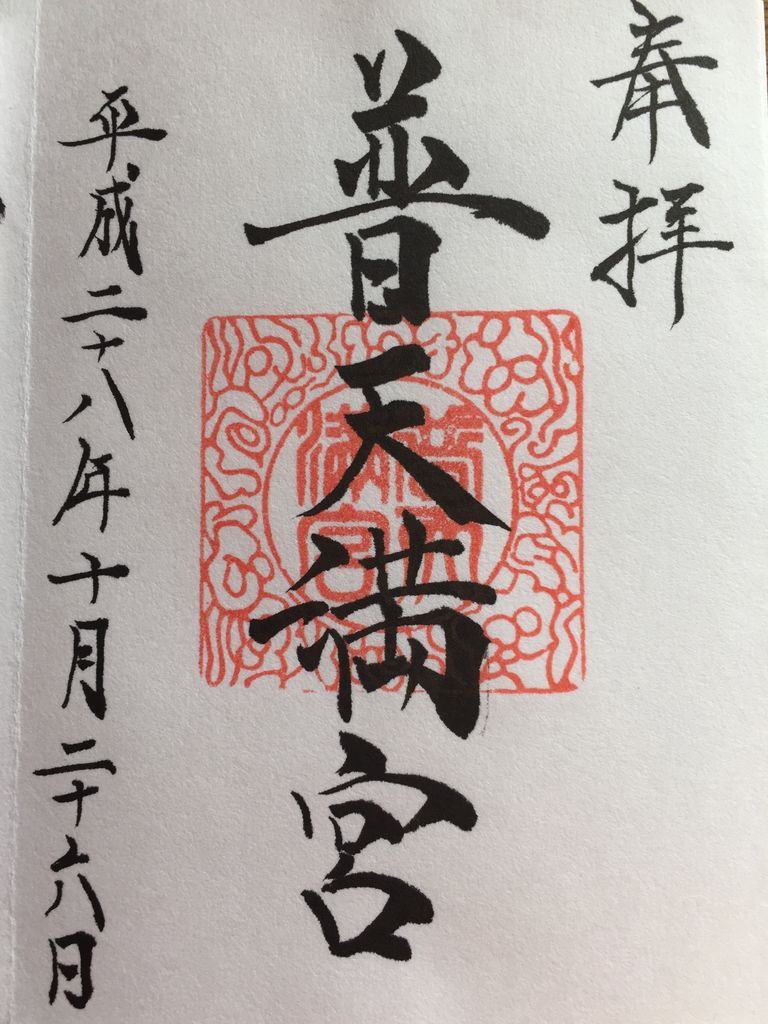 奉拝
普天満宮
平成二十八年十月二十六日